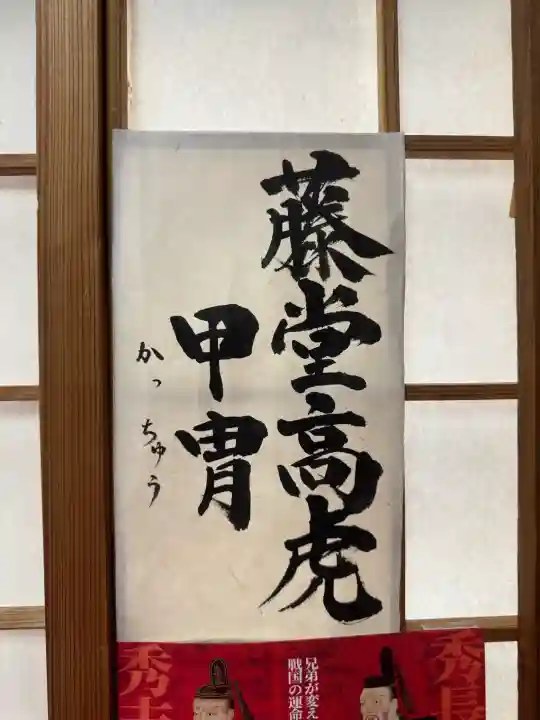 藤堂高虎
甲冑
かっちゅう
秀長
兄弟が変え
戦国の運命
秀吉